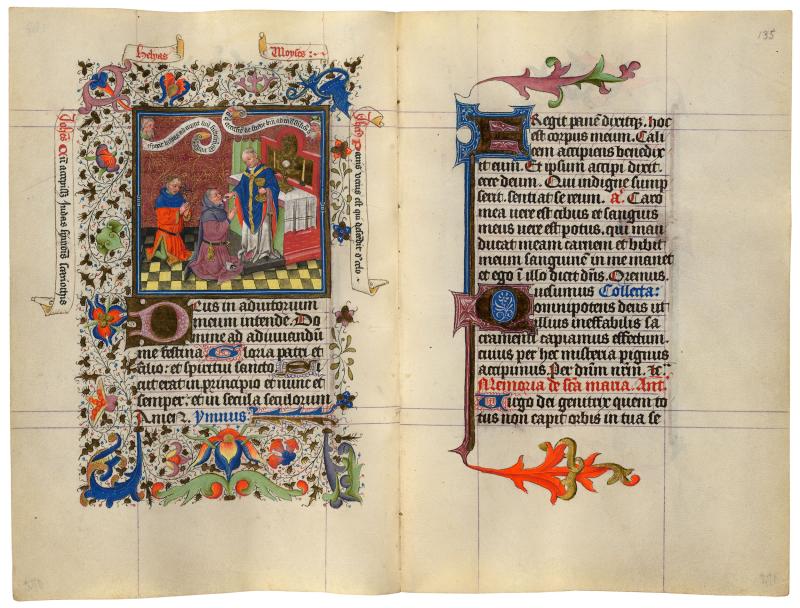 Helyas
Moyses
Deus in adiutorium
meum intende. Do
mine ad adiuuandū
me festina Gloria patri et
filio: et spiritui sancto Si
cut erat in principio et nunc et
semper: et in secula seculorum
Amen. Ymnus
135
Fregit panē dixitqȝ. hoc
est corpus meum. Cali
cem accipiens benedix
it eum. Et ipsum accipi dixit.
cere deum. Qui indigne sump
serit. sentiat se reum. a. Caro
mea vere est cibus et sanguis
meus vere est potus. qui man
ducat meam carnem et bibit
meum sanguinē in me manet
et ego ī illo dicit dn̄s. Oremus.
Quesumus Collecta:
omnipotens deus ut
illius ineffabilis sa
cramenti capiamus effectum.
cuius per hec misteria pignus
accipimus. Per dnm nrm. tc
Memoria de sc̄a maria. Ant.
Uirgo dei genitrix quem to
tus non capit orbis in tua se